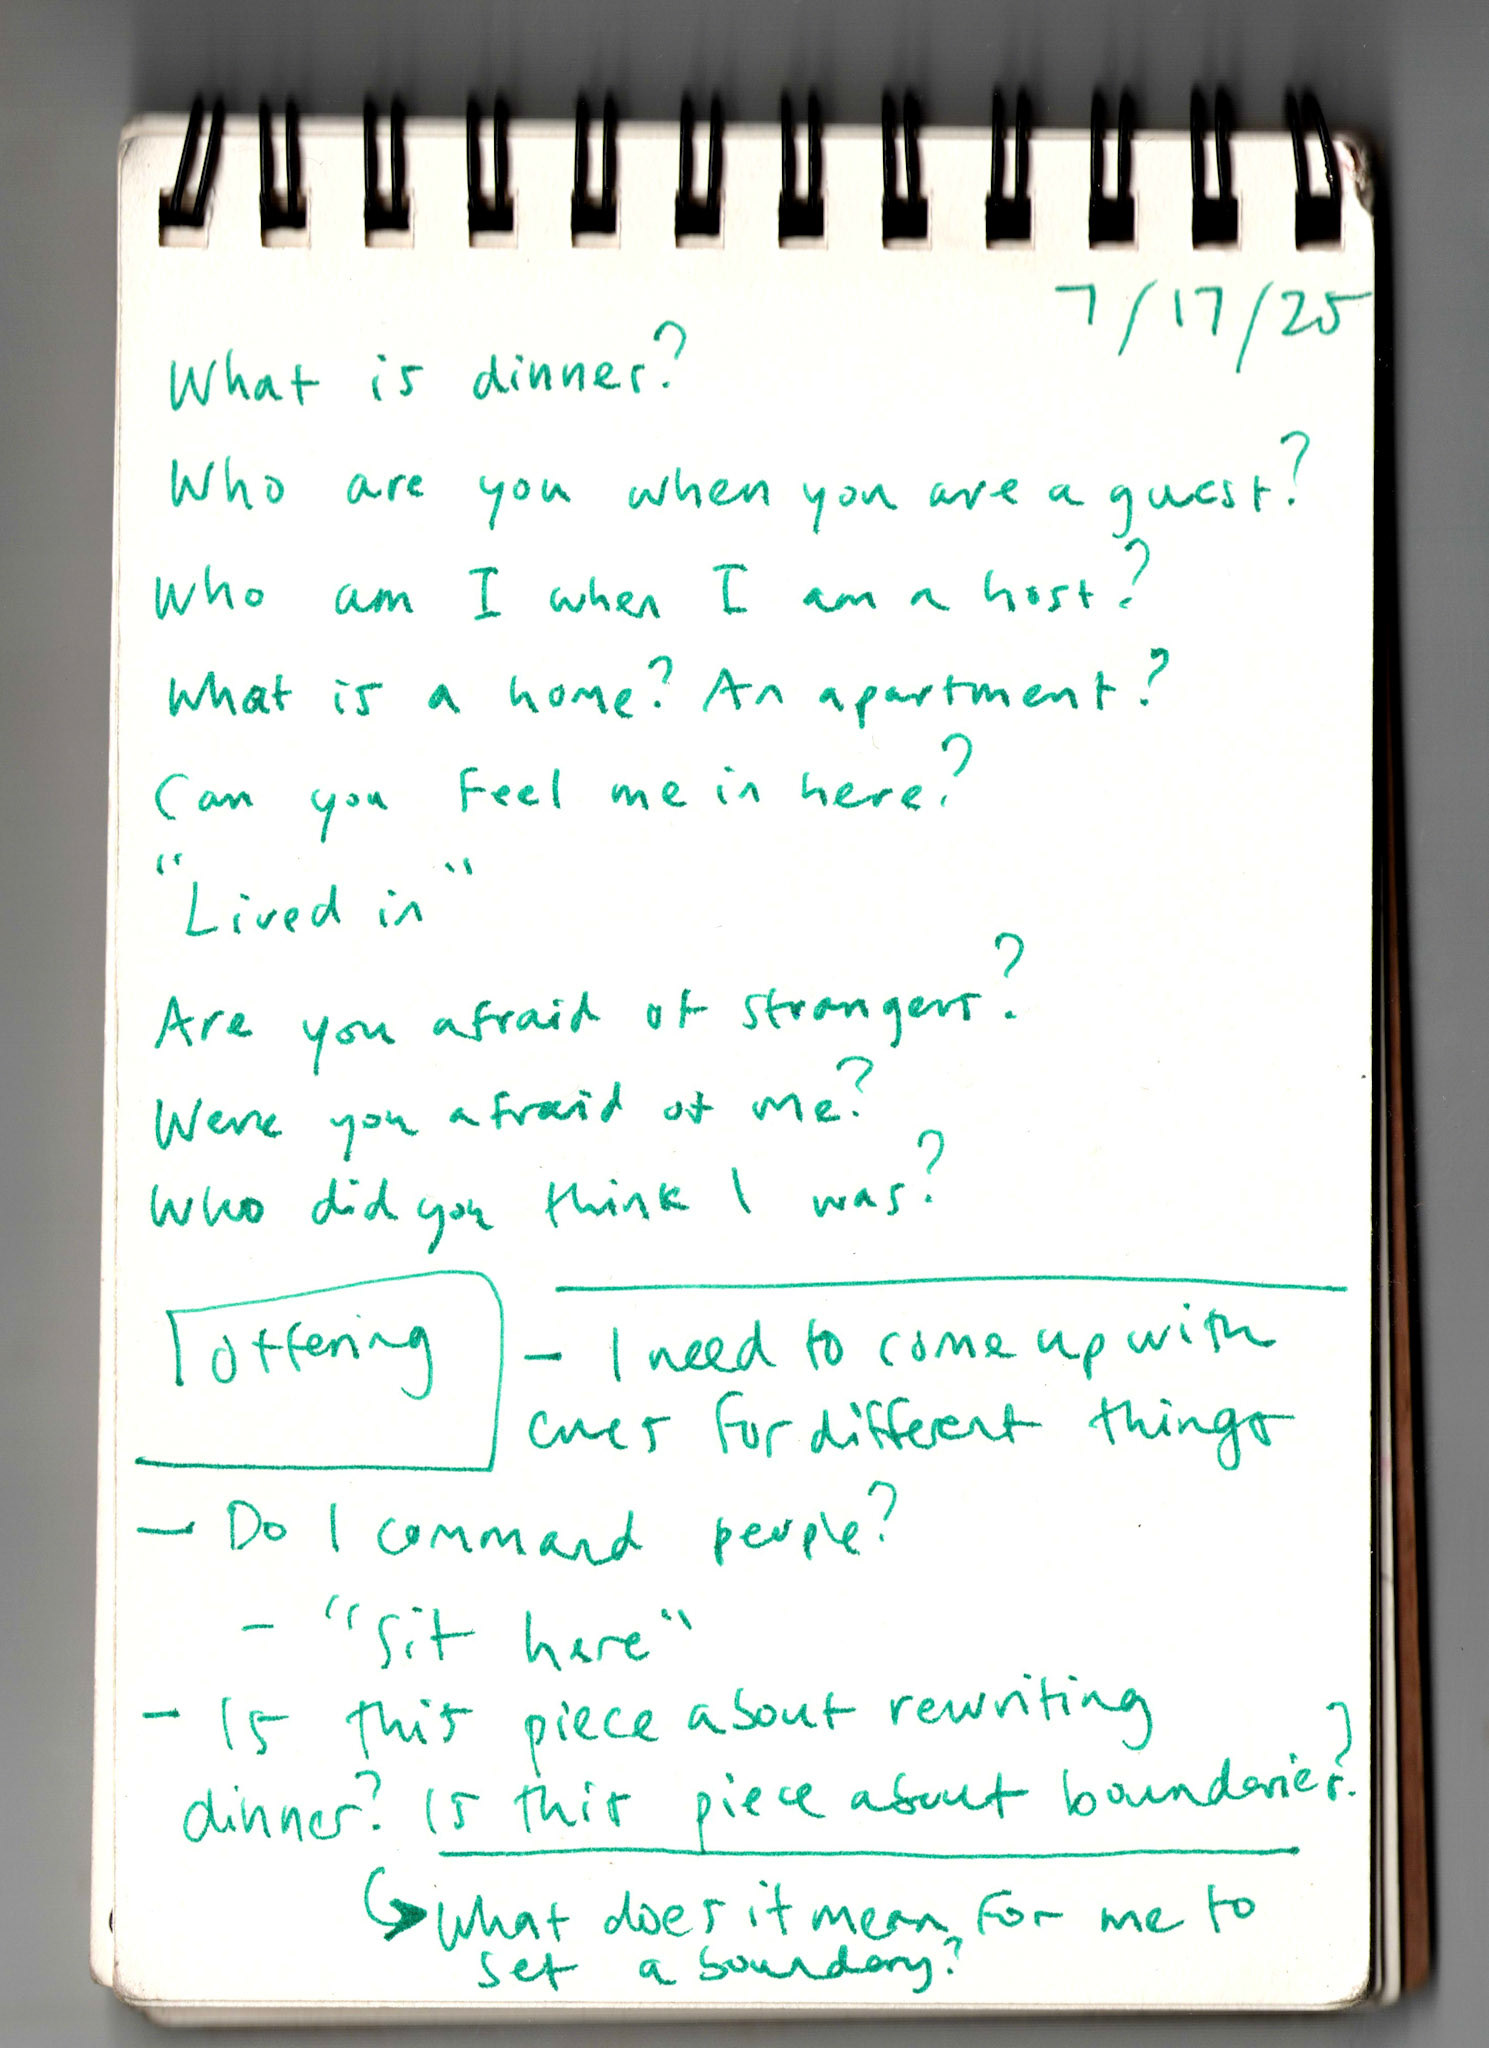 7/17/25
What is dinner?
Who are you when you are a guest?
Who am I when I am a host?
What is a home? An apartment?
Can you feel me in here?
"Lived in"
Are you afraid of strangers?
Were you afraid of me?
Who did you think I was?
offering
- I need to come up with
cues for different things
- Do I command people?
- "Sit here"
- Is this piece about rewriting
dinner? Is this piece about boundaries?
What does it mean for me to
set a boundary?